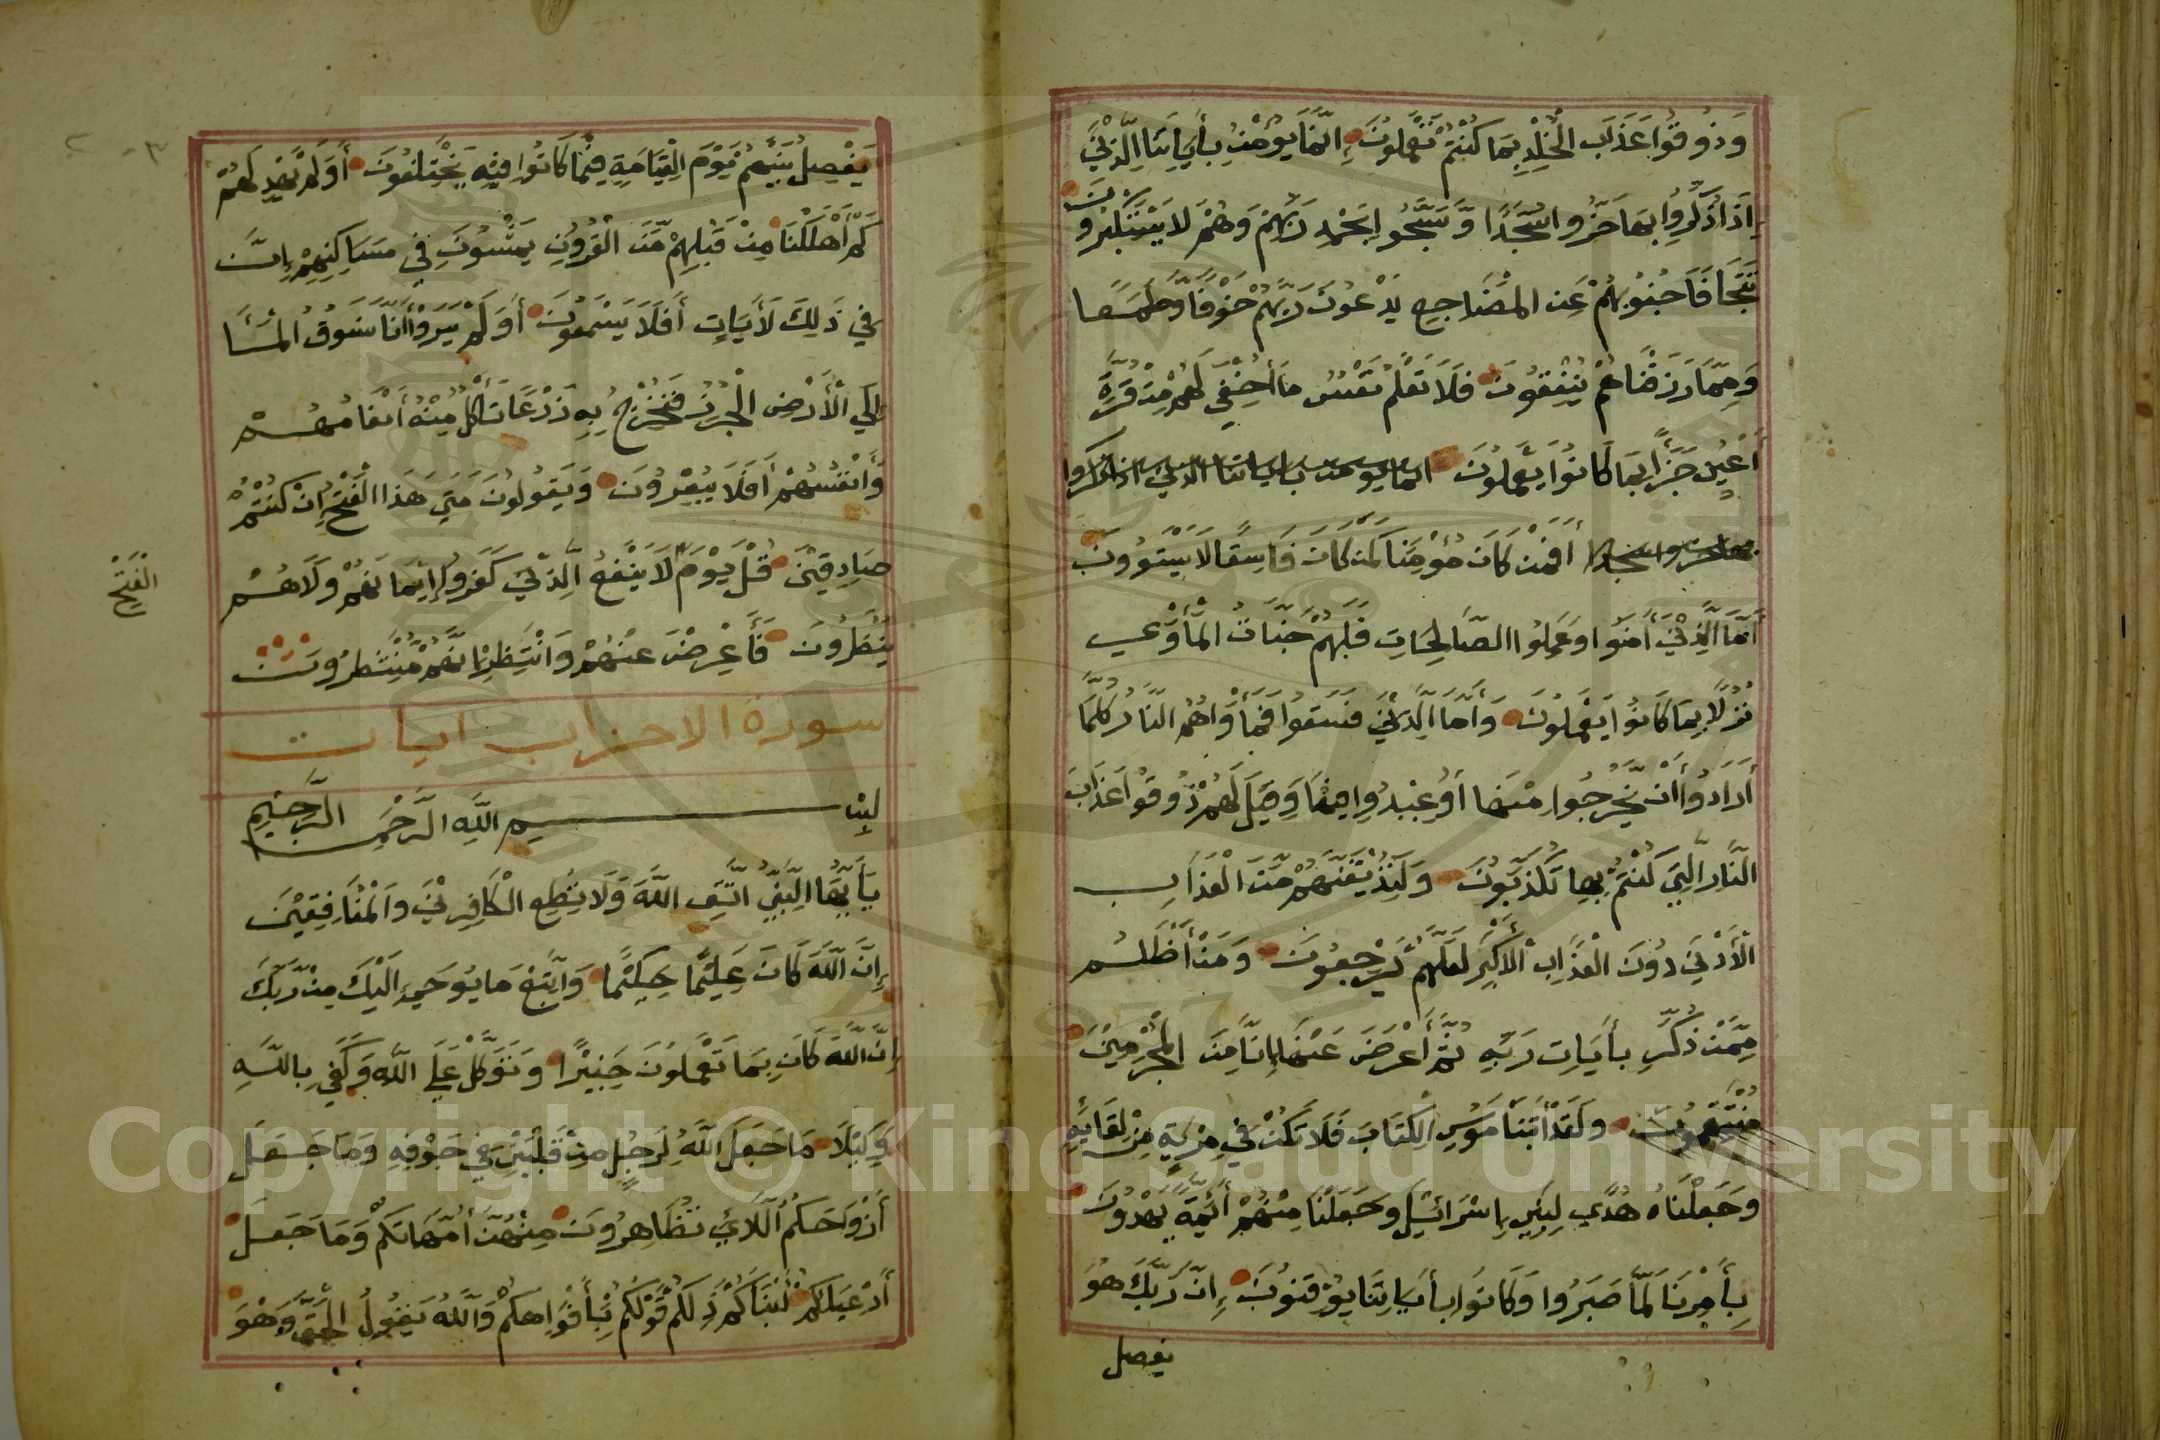 وَذُوقُوا عَذَابَ الْخُلْدِ بِمَا كُنْتُمْ تَعْمَلُونَ إِنَّمَا يُؤْمِنُ بِأَيَاتِنَا الَّذِيْنَ
إِذَا ذُكِّرُوا بِهَا خَرُّوا سُجَّدًا وَّسَبَّحُوا بِحَمْدِ رَبِّهِمْ وَهُمْ لَا يَسْتَكْبِرُونَ
تَتَجَافَا جُنُوبُهُمْ عَنِ الْمَضَاجِعِ يَدْعُونَ رَبَّهُمْ خَوْفًا وَّطَمَعًا
وَمِمَّا رَزَقْنَاهُمْ يُنْفِقُونَ فَلَا تَعْلَمُ نَفْسٌ مَا أُخْفِيَ لَهُمْ مِنْ قُرَّةِ
أَعْيُنٍ جَزَاءً بِمَا كَانُوا يَعْمَلُونَ انما يومن باياتنا الذين اذا ذكروا
بها خروا سجدا أَفَمَنْ كَانَ مُؤْمِنًا كَمَنْ كَانَ فَاسِقًا لَا يَسْتَوُونَ
أَمَّا الَّذِيْنَ أَمَنُوا وَعَمِلُوا الصَّالِحَاتِ فَلَهُمْ جَنَّاتُ الْمَأْوَى
نُزُلًا بِمَا كَانُوا يَعْمَلُونَ وَأَمَّا الَّذِيْنَ فَسَقُوا فَمَأْوَاهُمُ النَّارُ كُلَّمَا
أَرَادُوا أَنْ يَّخْرُجُوا مِنْهَا أُعِيْدُوا فِيْهَا وَقِيْلَ لَهُمْ ذُوقُوا عَذَابَ
النَّارِ الَّتِي كُنْتُمْ بِهَا تُكَذِّبُونَ وَلَنُذِيْقَنَّهُمْ مِّنَ الْعَذَابِ
الْأَدْنَى دُونَ الْعَذَابِ الْأَكْبَرِ لَعَلَّهُمْ يَرْجِعُونَ وَمَنْ أَظْلَمُ
مِمَّنْ ذُكِّرَ بِأَيَاتِ رَبِّهِ ثُمَّ أَعْرَضَ عَنْهَا إِنَّا مِنَ الْمُجْرِمِيْنَ
مُنْتَقِمُونَ وَلَقَدْ أَتَيْنَا مُوسَى الْكِتَابَ فَلَا تَكُنْ فِي مِرْيَةٍ مِنْ لِقَايِهِ
وَجَعَلْنَاهُ هُدًى لِبَنِي إِسْرَائِيْلَ وَجَعَلْنَا مِنْهُمْ أَئِمَّةً يَّهْدُونَ
بِأَمْرِنَا لَمَّا صَبَرُوا وَكَانُوا بِأَيَاتِنَا يُوْقِنُونَ إِنَّ رَبَّكَ هُوَ
يفصل
يَفْصِلُ بَيْنَهُمْ يَوْمَ الْقِيَامَةِ فِيْمَا كَانُوا فِيْهِ يَخْتَلِفُونَ أَوَلَمْ يَهْدِ لَهُمْ
كَمْ أَهْلَكْنَا مِنْ قَبْلِهِمْ مِّنَ الْقُرُونِ يَمْشُونَ فِي مَسَاكِنِهِمْ إِنَّ
فِي ذَلِكَ لَأَيَاتٍ أَفَلَا يَسْمَعُونَ أَوَلَمْ يَرَوْا أَنَّا نَسُوقُ الْمَاءَ
إِلَى الْأَرْضِ الْجُرُزِ فَنُخْرِجُ بِهِ زَرْعًا تَأْكُلُ مِنْهُ أَنْعَامُهُمْ
وَأَنْفُسُهُمْ أَفَلَا يُبْصِرُونَ وَيَقُولُونَ مَتَى هَذَا الْفَتْحُ إِنْ كُنْتُمْ
صَادِقِيْنَ قُلْ يَوْمَ لَا يَنْفَعُ الَّذِيْنَ كَفَرُوا إِيْمَانُهُمْ وَلَا هُمْ
الْفَتْحِ
يُنْظَرُونَ فَأَعْرِضْ عَنْهُمْ وَانْتَظِرْ إِنَّهُمْ مُّنْتَظِرُونَ
سورة الاحزاب ايات
بِسْمِ اللَّهِ الرَّحْمَنِ الرَّحِيْمِ
يَأَيُّهَا النَّبِيُّ اتَّقِ اللَّهَ وَلَا تُطِعِ الْكَافِرِيْنَ وَالْمُنَافِقِيْنَ
إِنَّ اللَّهَ كَانَ عَلِيْمًا حَكِيْمًا وَاتَّبِعْ مَا يُوحَى إِلَيْكَ مِنْ رَّبِّكَ
إِنَّ اللَّهَ كَانَ بِمَا تَعْمَلُونَ خَبِيْرًا وَتَوَكَّلْ عَلَى اللَّهِ وَكَفَى بِاللَّهِ
وَكِيْلًا مَا جَعَلَ اللَّهُ لِرَجُلٍ مِنْ قَلْبَيْنِ فِي جَوْفِهِ وَمَا جَعَلَ
أَزْوَاجَكُمُ اللَّائِي تُظَاهِرُونَ مِنْهُنَّ أُمَّهَاتِكُمْ وَمَا جَعَلَ
أَدْعِيَاءَكُمْ أَبْنَاءَكُمْ ذَلِكُمْ قَوْلُكُمْ بِأَفْوَاهِكُمْ وَاللَّهُ يَقُولُ الْحَقَّ وَهْوَ
Copyright © King Saud University